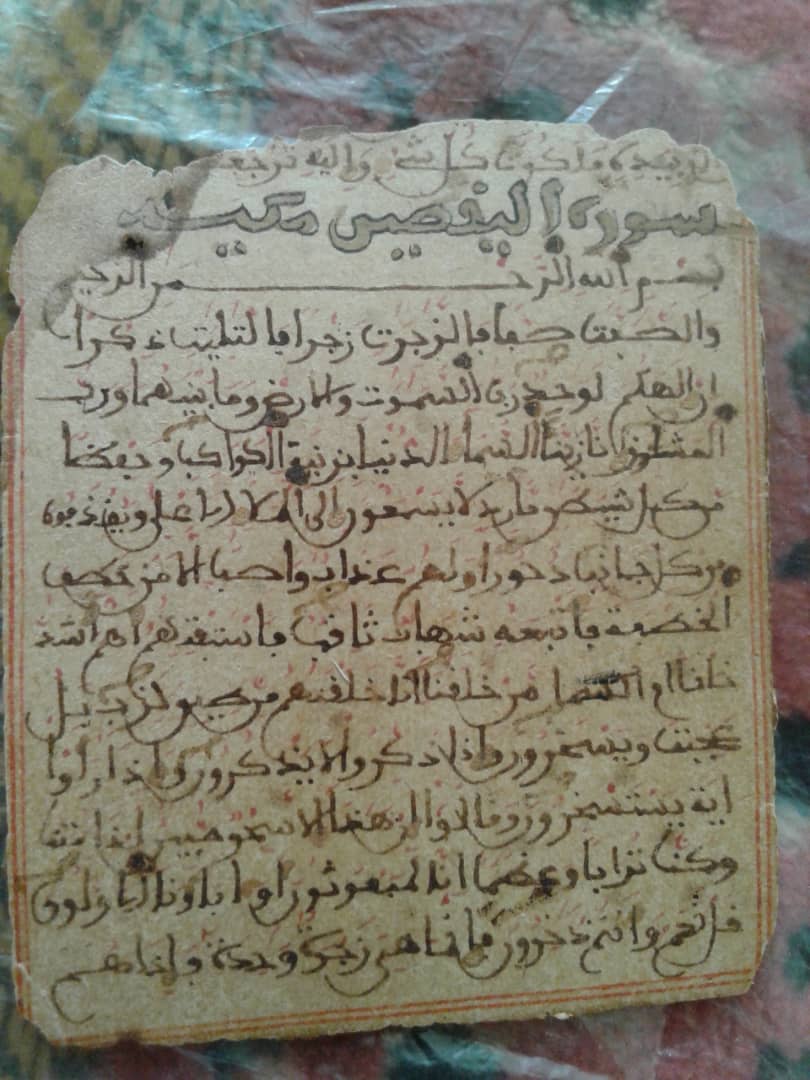 الذي بيده ملكوت كل شيء واليه ترجعو
سورة اليقطين مكية
بسم الله الرحمن الرحيم
والصفت صفا فالزجرت زجرا فالتليت ذكرا
ان الهكم لوحد رب السموت والارض وما بينهما ورب
المشرق انا زينا السما الدنيا بزينة الكواكب وحفظا
من كل شيطن مارد لا يسمعون الى الملا الاعلى ويقذفون
من كل جانب دحورا ولهم عذاب واصب الا من خطف
الخطفة فاتبعه شهاب ثاقب فاستفتهم اهم اشد
خلقا ام من خلقنا انا خلقنهم من طين لازب بل
عجبت ويسخرون واذا ذكروا لا يذكرون واذا راوا
اية يستسخرون وقالوا ان هذا الا سحر مبين اذا متنا
وكنا ترابا وعظما انا لمبعوثون او اباونا الاولون
قل نعم وانتم دخرون فانما هي زجرة وحدة فاذا هم